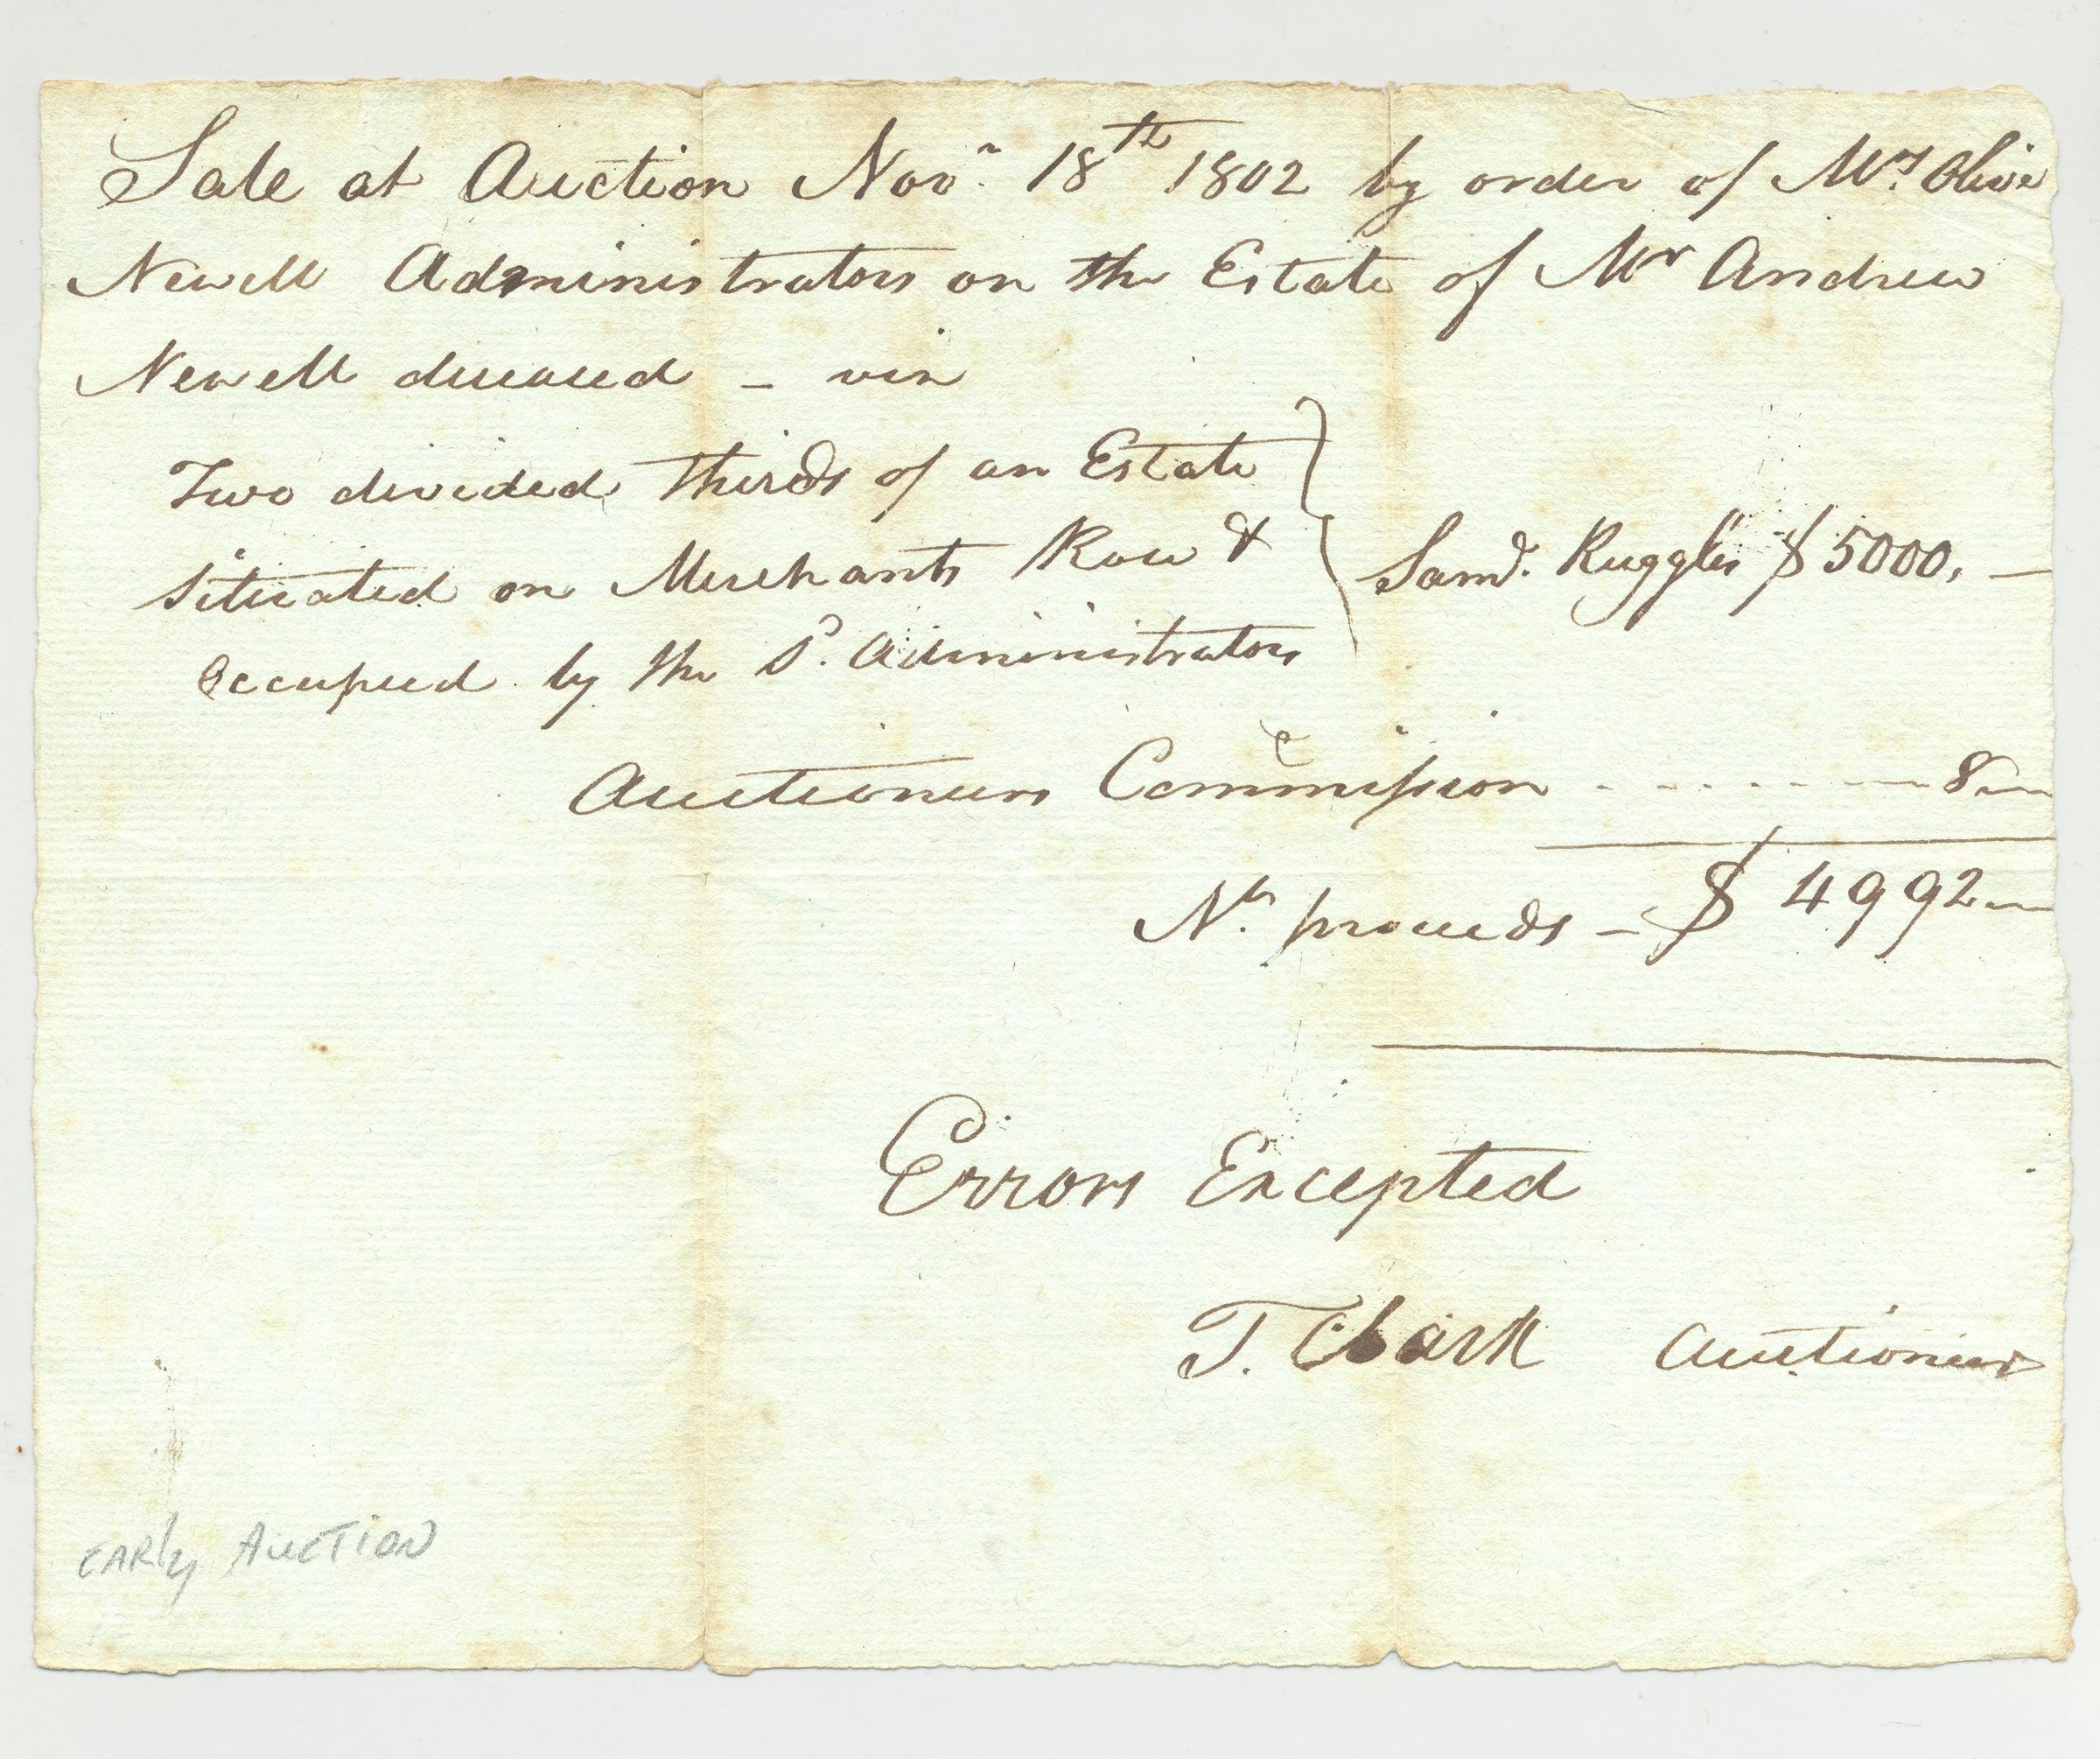 Sale at Auction Novr. 18th 1802 by order of Mrs. Olive
Newell Administrators on the Estate of Mr Andrew
Newell deceased - viz
Two divided thirds of an Estate
situated on Merchants Row &
occupied by the sd. Administrators
Saml. Ruggles $5000. —
Auctioneers Commission - - - - - - 8 —
Nt. proceeds — $ 4992 —
Errors Excepted
T. Clark Auctioneer
EARly AUCTION